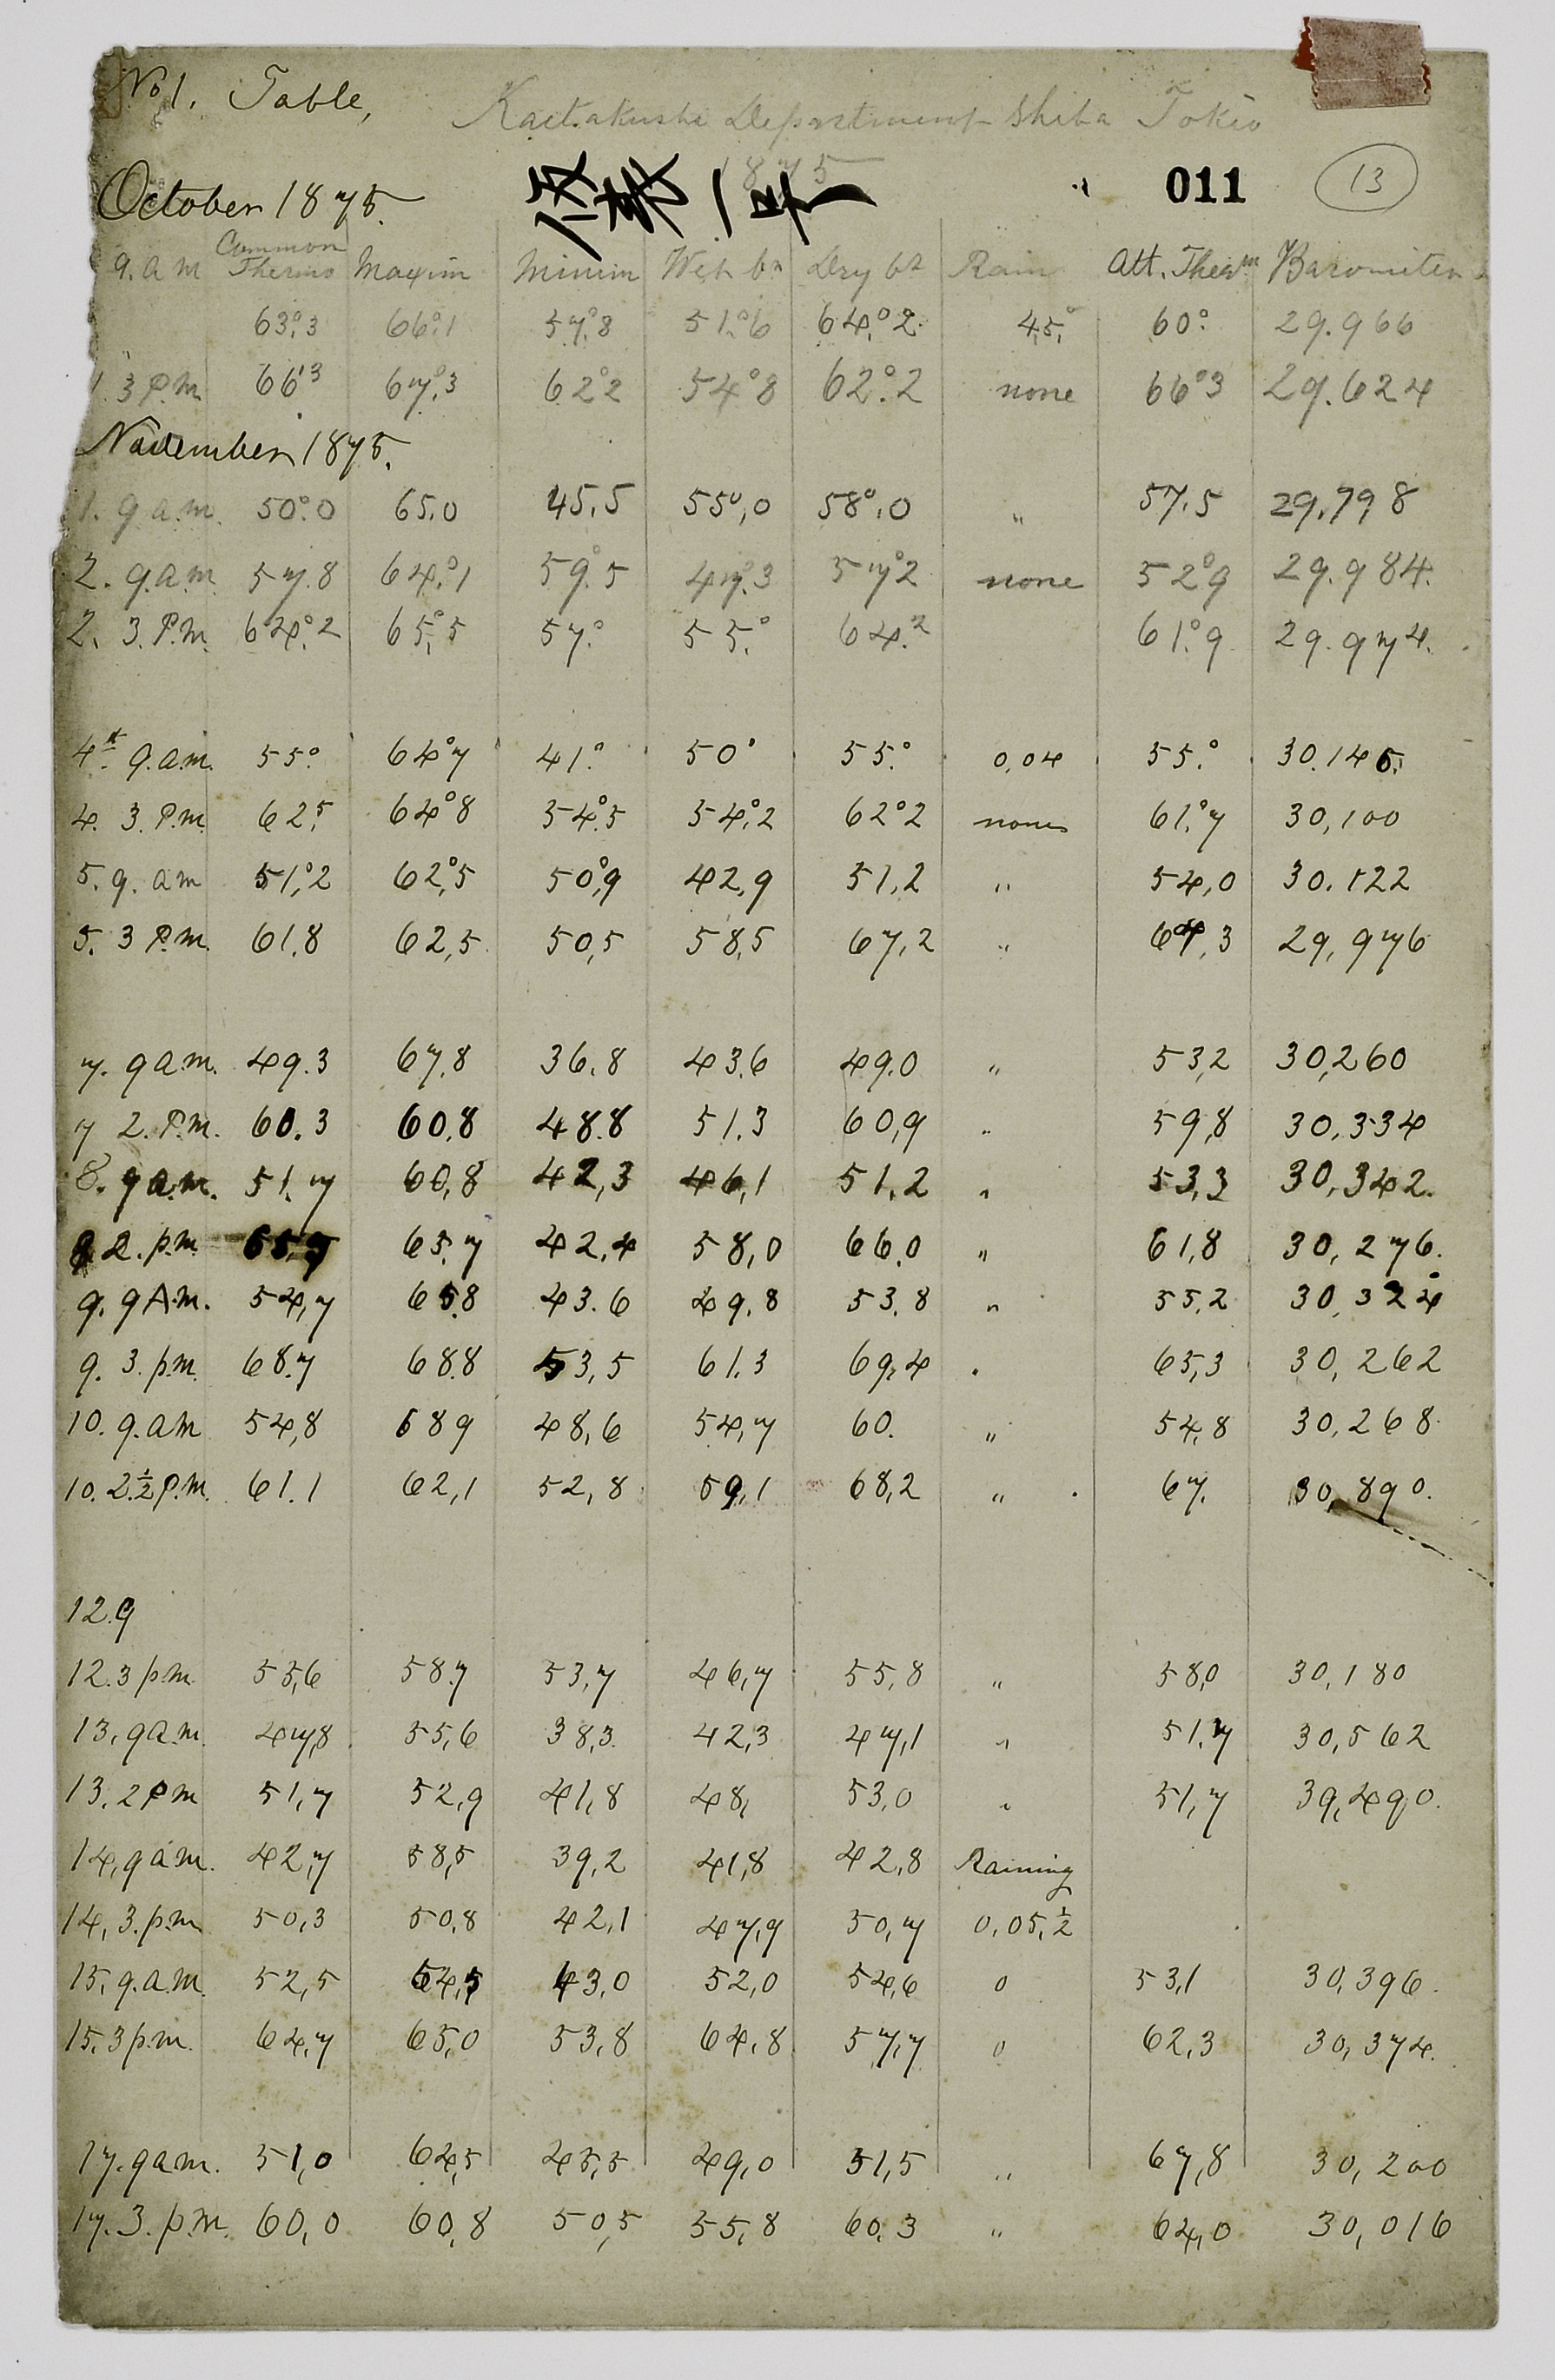 No 1. Table,
Kaitakushi Department Shiba Tokio
1875
011
13
October 1875.
9. a m Common Thermo Maxim Minim Wet bn Dry bn Rain Att. Therm Barometer
63°.3 66°.1 57°.8 51°.6 64°.2 45° 60° 29.966
1. 3 P.M. 66°3 67°.3 62°2 54°8 62°.2 none 66°3 29.624
November 1875.
1. 9 a.m. 50°.0 65.0 45.5 55°,0 58°.0 " 57.5 29.798
2. 9.a.m. 57.8 64°.1 59°.5 47°.3 57°2 none 52°9 29.984.
2. 3. P.M. 64°.2 65°.5 57.° 55.° 64.2 61°.9 29.974.
4th 9.a.m. 55° 64°7 41.° 50° 55.° 0,04 55.° 30.145.
4. 3. P.M. 62.5 64°8 54°.5 54°.2 62°2 none 61°.7 30,100
5. 9. am 51°,2 62°,5 50°,9 42,9 51,2 " 54,0 30.122
5. 3 P.M. 61.8 62,5 50,5 58,5 67,2 " 64,3 29,976
7. 9 a.m. 49.3 67,8 36.8 43.6 49.0 " 53,2 30,260
7 2. P.M. 60.3 60,8 48.8 51.3 60,9 " 59,8 30,334
8. 9 a.m. 51.7 60,8 42,3 46,1 51,2 " 53,3 30,342.
8 2. p.m. 65,7 65.7 42,4 58,0 66.0 " 61,8 30,276.
9. 9 A.m. 54,7 65.8 43.6 49,8 53.8 " 55.2 30,324
9. 3. p.m. 68.7 68.8 53,5 61.3 69,4 " 65,3 30,262
10. 9.am 54,8 689 48,6 54,7 60. " 54,8 30,268.
10. 2.½ P.M. 61.1 62,1 52,8 59,1 68,2 " 67. 30,890.
12.9
12.3 p.m. 55,6 58.7 53,7 46,7 55,8 " 58,0 30,180
13, 9 a.m. 47,8 55,6 38,3. 42,3 47,1 " 51,7 30,562
13. 2 P m 51,7 52,9 41,8 48, 53,0 " 51,7 39,490.
14, 9 a.m. 42,7 58,5 39,2 41,8 42,8 Raining
14, 3. p.m 50,3 50,8 42,1 47,9 50,7 0,05,½
15, 9.a.m. 52,5 54,5 43,0 52,0 54,6 0 53,1 30,396.
15. 3 p.m. 64,7 65,0 53,8 64,8 57,7 0 62,3 30,374.
17. 9 a.m. 51,0 64,5 45,5 49,0 51,5 " 67,8 30,200
17. 3. p.m. 60,0 60,8 50,5 55,8 60,3 " 64,0 30,016